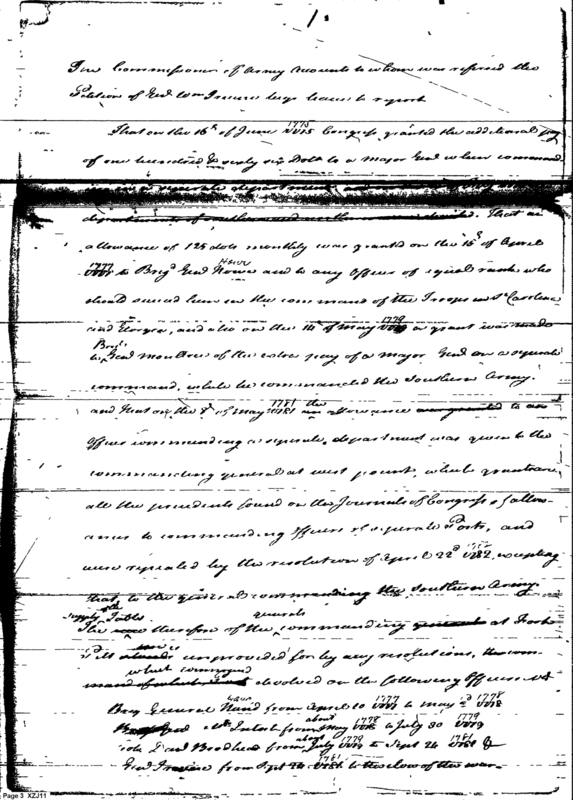 1.
The Commissioner of Army Accounts to whom was referred the
Petition of Genl Wm Irvine begs leave to report
That on the 16th of June 1775 Congress granted the additional pay
of one hundred & sixty six Dolls to a Major Genl when command
ing in a separate department
departments That an
allowance of 125 dolls monthly was granted on the 15th of April
1777 to Brigr Genl Howe and to any Officer of equal rank who
should succeed him in the command of the Troops in So Carolina
and Georgia, and also on the of May 1779 a grant was made
to Brigr Genl Moultrie of the extra pay of a Major Genl on a separate
command, while he commanded the Southern Army.
and that on the 8 of May 1781 the allowance to an
Officer commanding a separate department was given to the
commanding general at west point, which grants are
all the precedents found on the Journals of Congress of allow-
ances to commanding Officers of separate Posts, and
were repealed by the resolution of April 22d 1782, excepting
that to the general commanding the Southern Army.
The supply of the Table therefore of the commanding generals at Fort
Pitt was unprovided for by any resolutions, the com-
mand of which command devolved on the following Officers Vt
Brigr General Hand from April 10 1777 to May 2d 1778
Genl McIntosh from about May 1778 to July 30 1779
Colo Danl Brodhead from about July 1779 to Sept 24 1781 &
Genl Irvine from Sept 24 1781 to the close of the war.
Page 3 XZJ11